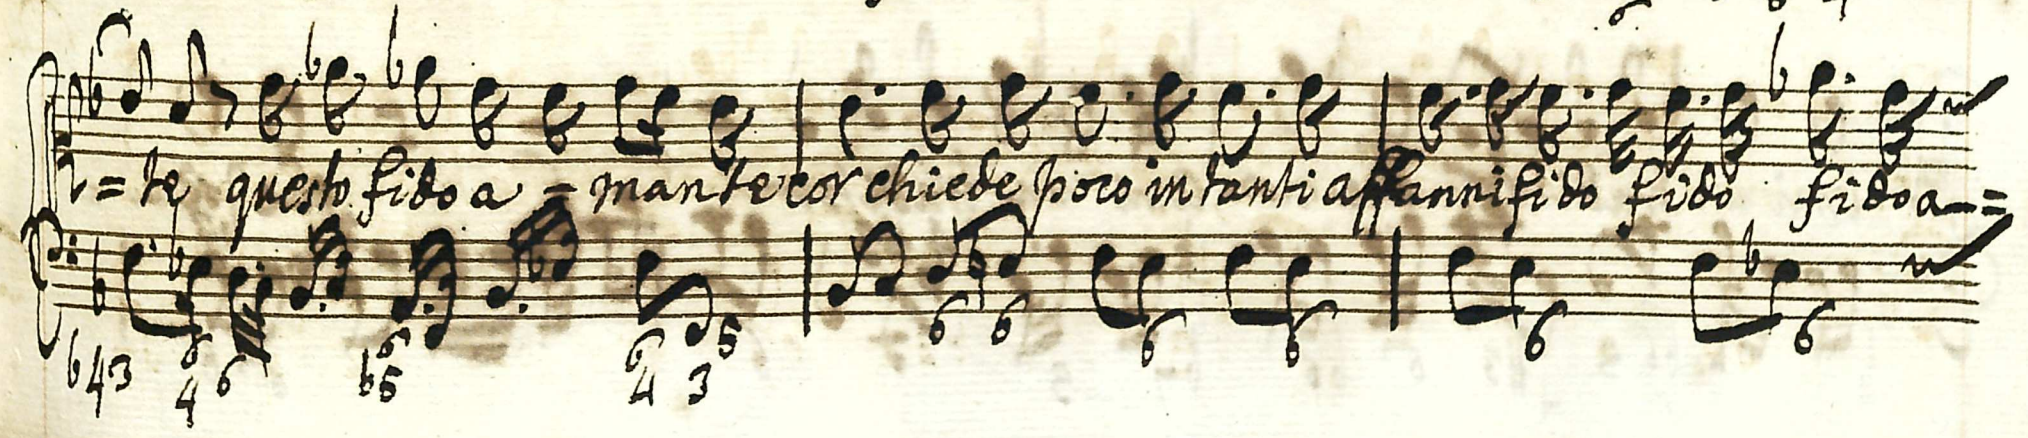 =te questo fido a=mante cor chiede poco in tanti affanni fido fido fido a=
6 6 6 6 6 6
b43 6 4 6 b6 5 6 4 3 5